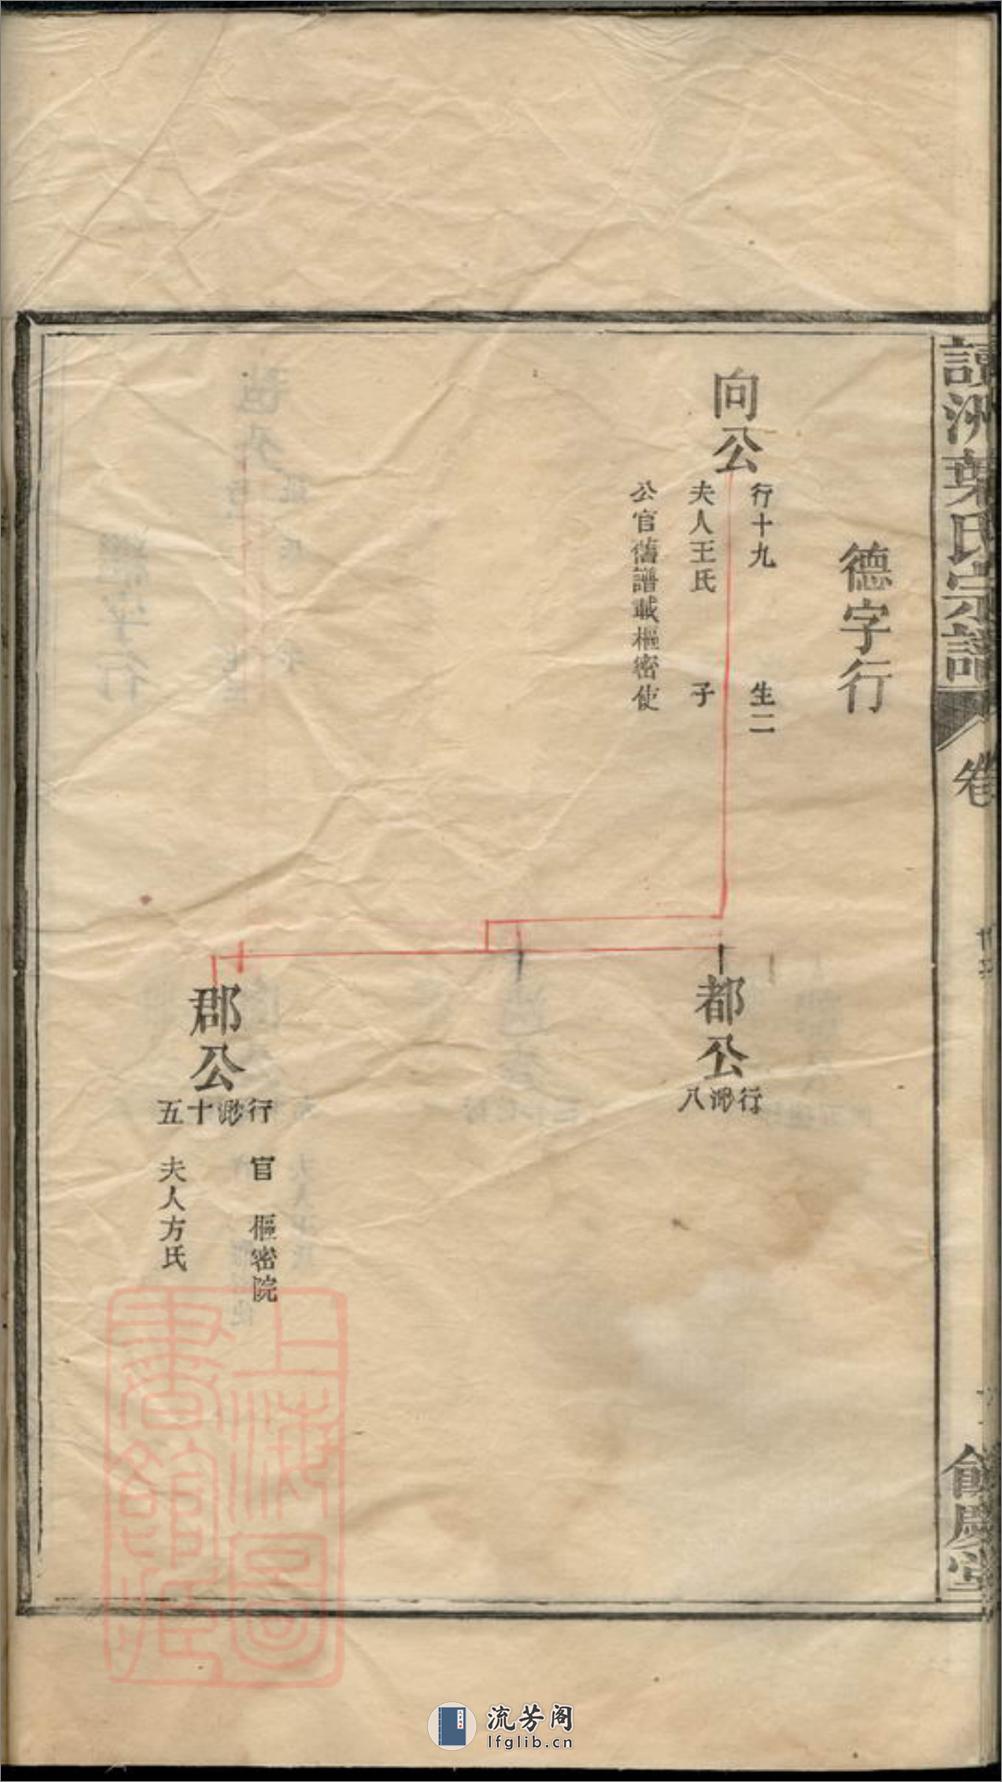 讀洲葉氏宗譜
卷
餘慶堂
德字行
向公
行十九 生二
夫人王氏 子
公官舊譜載樞密使
都公
行渺八
郡公
行渺十五
官 樞密院
夫人方氏
上海圖
書館藏
流芳阁
lfglib.cn